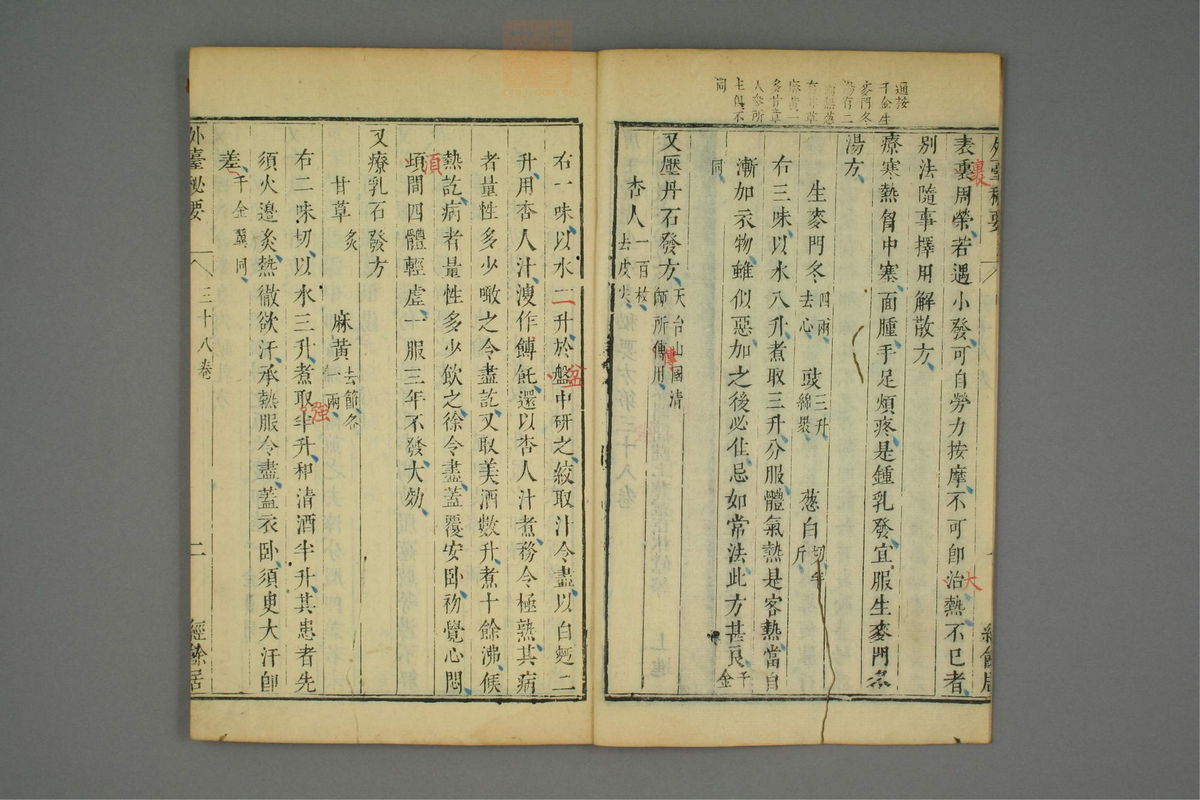 表裏周榮若遇小發可自勞力按摩不可卽治熱不巳者
裏
大
別法隨事擇用解散方
療寒熱胷中塞面腫手足煩疼是鍾乳發宜服生麥門冬
湯方
生麥門冬四兩去心 豉三升綿裹 葱白切半斤
右三味以水八升煮取三升分服體氣熱是客熱當自
漸加衣物雖似惡加之後必佳忌如常法此方甚良千金
同
又壓丹石發方天台山國清師所傳用
杏人一百枚去皮尖
通按
千金生
麥門冬
湯有二
無葱
有甘草
麻黄一
多甘草
人參所
主俱不
同
右一味以水二升於盤中研之絞取汁令盡以白麪二
盆
升用杏人汁溲作餺飥還以杏人汁煮務令極熟其病
者量性多少噉之令盡訖又取美酒數升煮十餘沸候
熱訖病者量性多少飲之徐令盡蓋覆安卧初覺心悶
頃間四體輕虛一服三年不發大効
須
又療乳石發方
甘草炙 麻黄去節各一兩
右二味切以水三升煮取半升和清酒半升其患者先
強
須火邊炙熱徹欲汗承熱服令盡蓋衣卧須臾大汗卽
差千金翼同
外臺秘要 三十八卷 二 經餘居